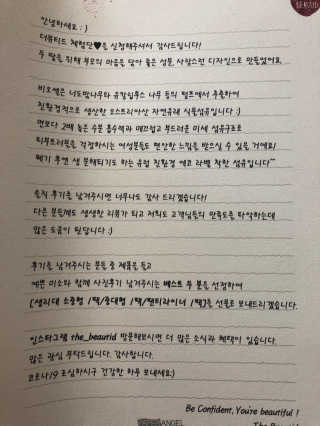 안녕하세요 : )
더뷰티드 체험단♥을 신청해주셔서 감사드립니다!
두 딸을 위해 부모의 마음을 담아 좋은 성분, 사랑스런 디자인으로 만들었어요.
비오셀은 너도밤나무와 유칼립투스 나무 등의 펄프에서 추출하여
친환경적으로 생산한 오스트리아산 자연유래 식물섬유입니다 :)
면보다 2배 높은 수분 흡수력과 매끄럽고 부드러운 미세 섬유구조로
피부트러블을 걱정하시는 여성분들도 편안한 느낌을 받으실 수 있을 거예요!
폐기 후엔 생 분해되기도 하는 유럽 친환경 에코 라벨 착한 섬유입니다~
솔직 후기를 남겨주시면 너무나도 감사 드리겠습니다!
다른 분들께도 생생한 리뷰가 되고 저희도 고객님들의 만족도를 파악하는데
많은 도움이 된답니다 :)
후기를 남겨주시는 분들 중 제품을 들고
예쁜 미소와 함께 사진후기 남겨주시는 베스트 두 분을 선정하여
[생리대 소중형 1팩/중대형 1팩/팬티라이너 1팩]을 선물로 보내드리겠습니다.
인스타그램 the_beautid 방문해보시면 더 많은 소식과 혜택이 있습니다.
많은 관심 부탁드립니다. 감사합니다.
코로나19 조심하시구 건강한 하루 보내세요:)
Be Confident, You're beautiful !
The Beautid
ANGEL